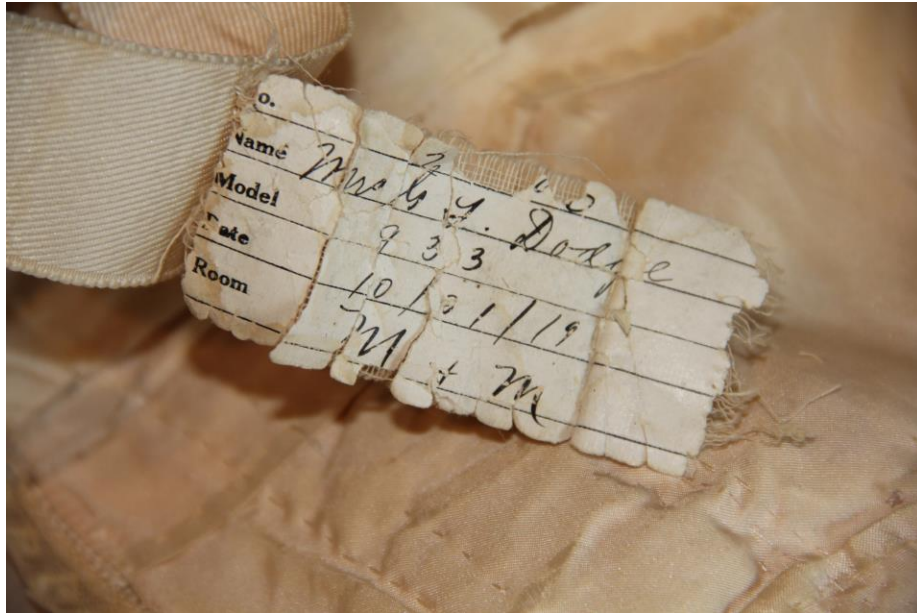 o.
Name Mrs G. Y. Dodge
Model 933
Date 10/31/19
Room M + M